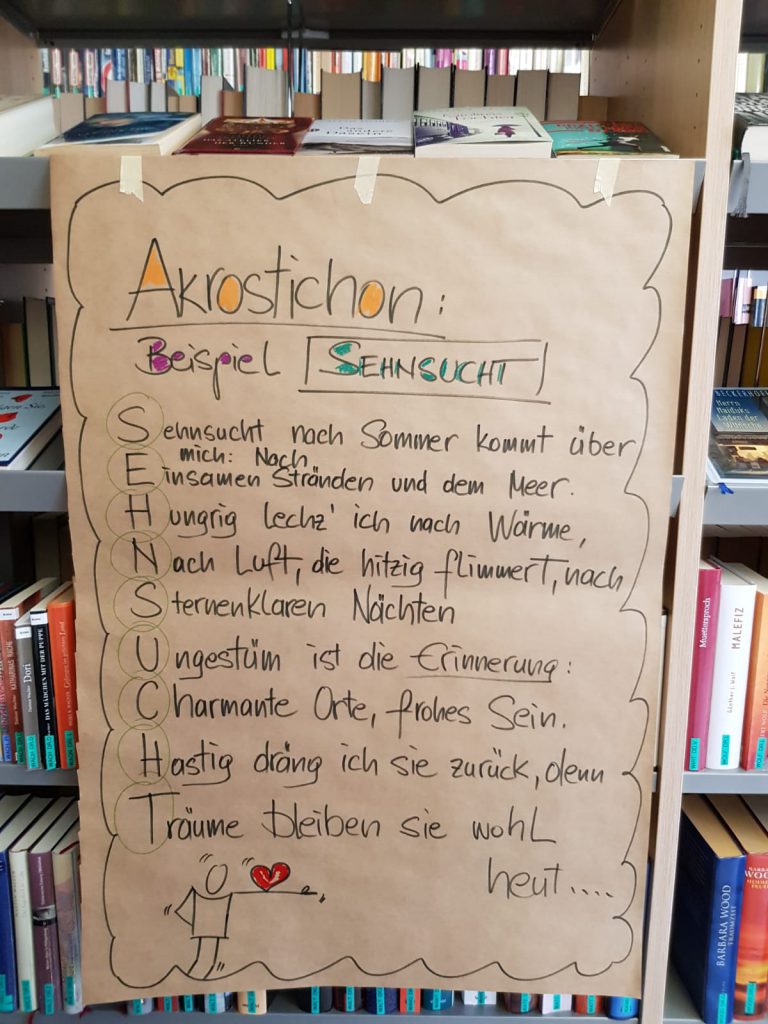 Akrostichon:
Beispiel SEHNSUCHT
Sehnsucht nach Sommer kommt über
mich: Nach
Einsamen Stränden und dem Meer.
Hungrig lechz' ich nach Wärme,
Nach Luft, die hitzig flimmert, nach
Sternenklaren Nächten
Ungestüm ist die Erinnerung:
Charmante Orte, frohes Sein.
Hastig dräng ich sie zurück, denn
Träume bleiben sie wohl
heut....
BECKERHOFF
Herrn
Haiduks
Laden der
Muettersproch
MALEFIZ
Günther J. Wolf
Dori
DAS MÄDCHEN MIT DER PUPPE
BARBARA WOOD
TRAUMZEIT
BARBARA
WOOD